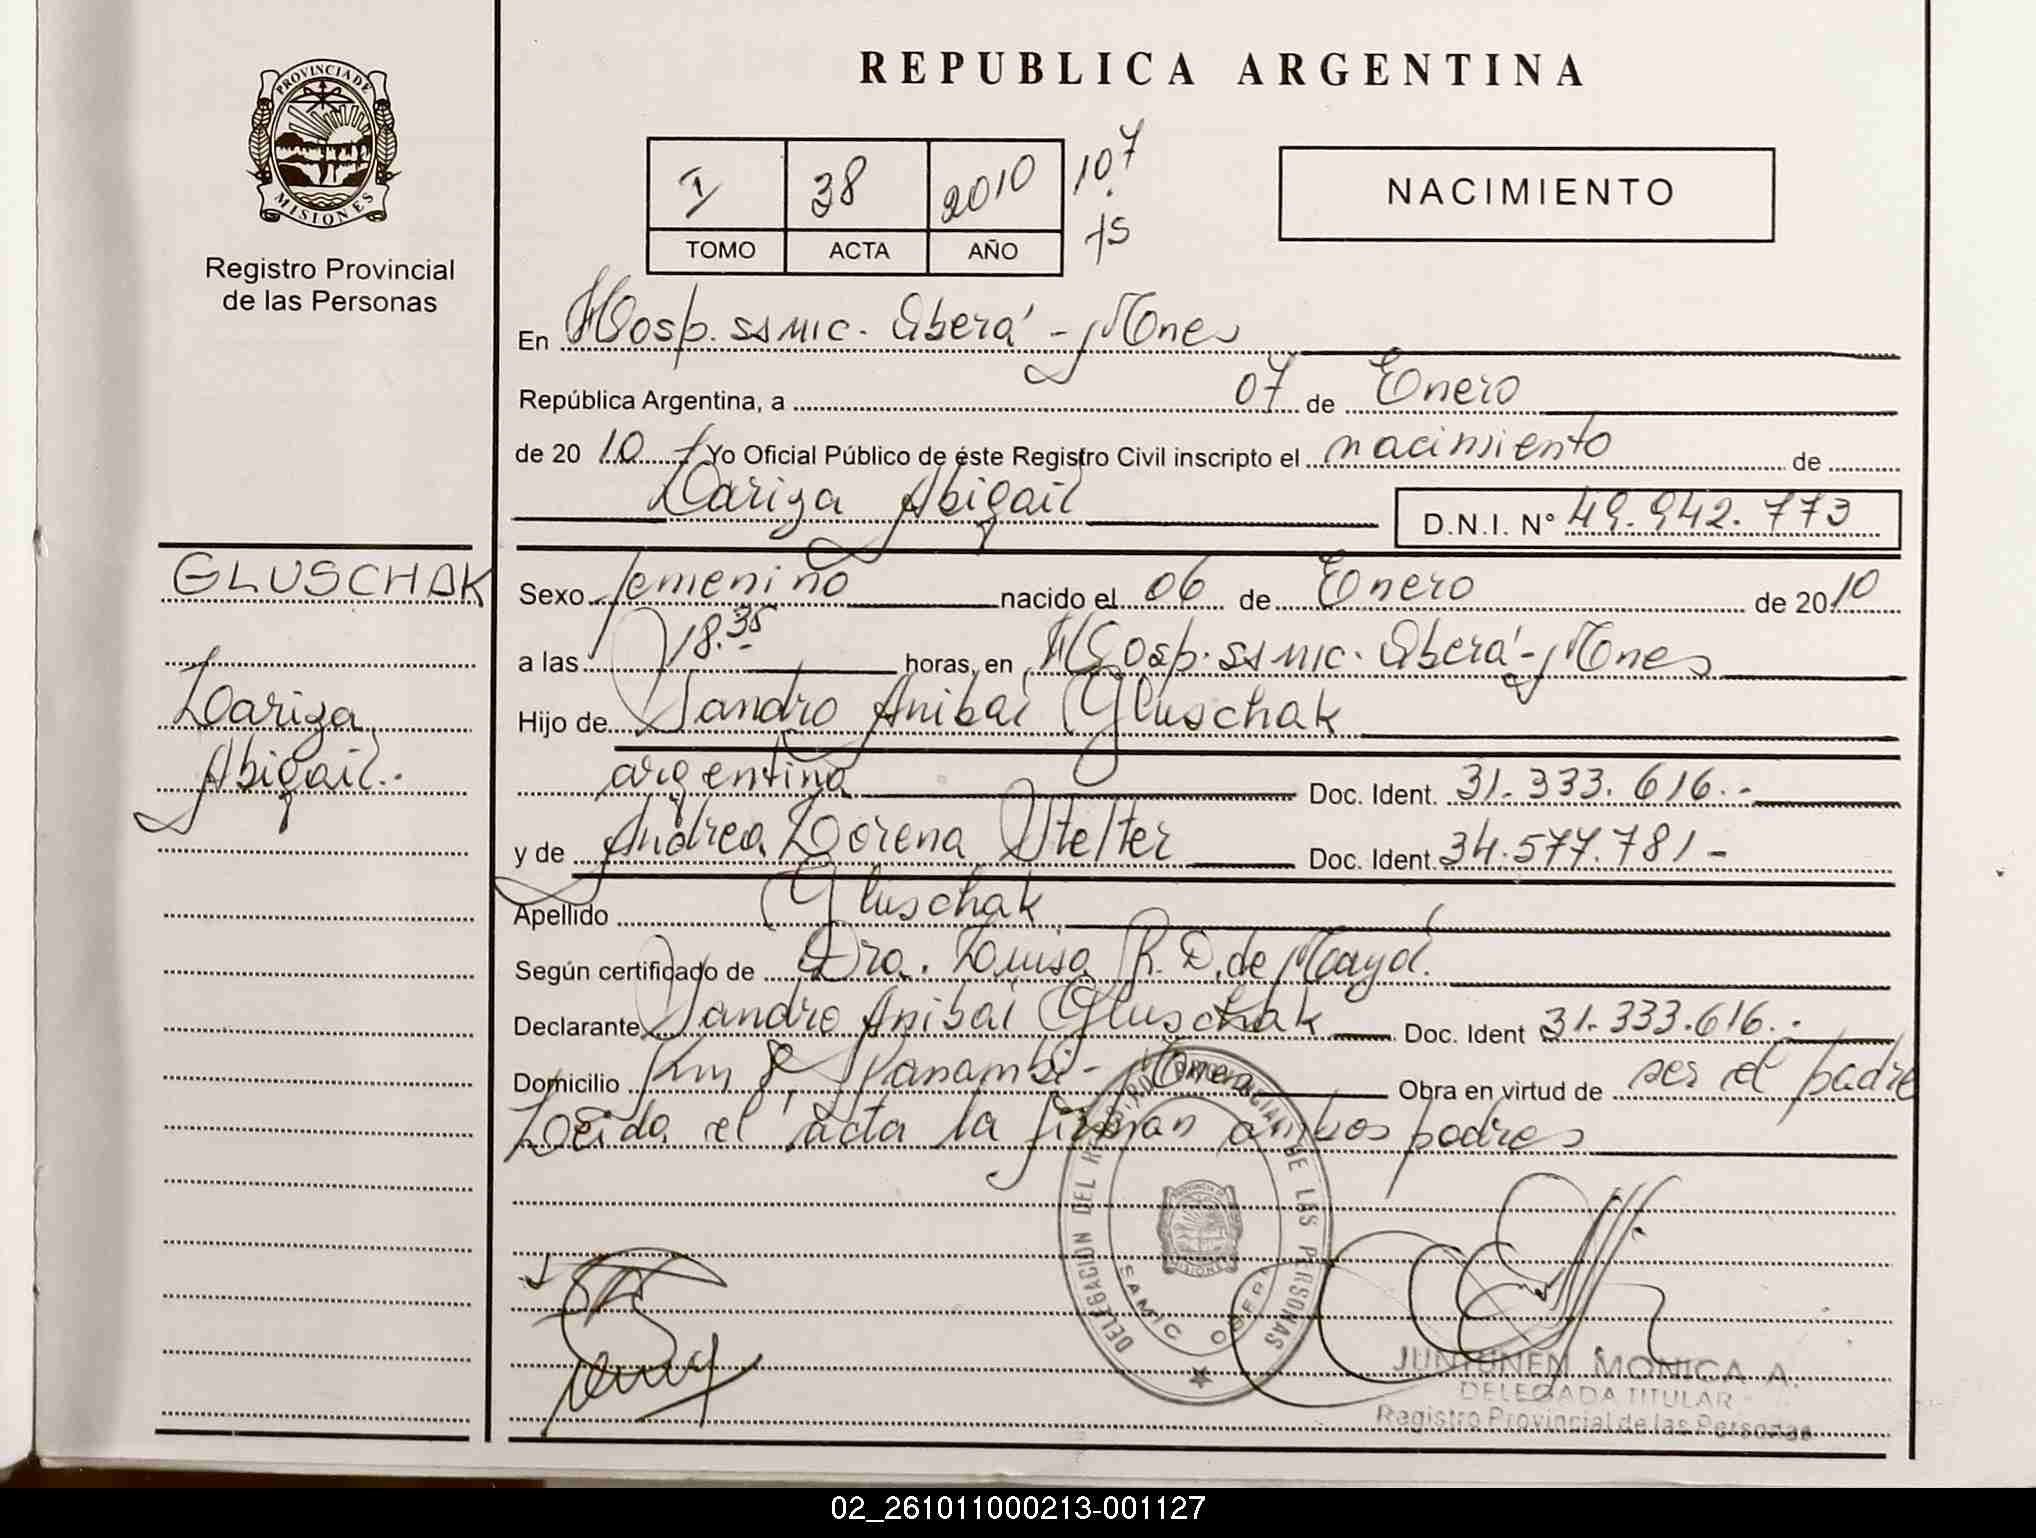 REPUBLICA ARGENTINA
PROVINCIA DE
MISIONES
Registro Provincial
de las Personas
I 38 2010 107
TOMO ACTA AÑO fs
NACIMIENTO
En Hosp. SSMIC. Oberá - Mnes
República Argentina, a 07 de Enero
de 20 10 Yo Oficial Público de éste Registro Civil inscripto el nacimiento de
Lariza Abigail D.N.I. N° 49.942.773
GLUSCHAK
Lariza
Abigail.-
Sexo femenino nacido el 06 de Enero de 20 10
a las 18.35 horas, en Hosp. SSMIC. Oberá - Mnes
Hijo de Sandro Anibal Gluschak
argentina Doc. Ident. 31.333.616.-
y de Andrea Lorena Stelter Doc. Ident 34.577.781-
Apellido Gluschak
Según certificado de Dra. Luisa R. D. de Mayol.
Declarante Sandro Anibal Gluschak Doc. Ident 31.333.616.-
Domicilio Km 8 Panambi - Mnes Obra en virtud de ser el padre
Leida el acta la firman ambos padres
DELEGACION DEL REGISTRO PROVINCIAL DE LAS PERSONAS
SAMIC OBERA
JUNTUNEN MONICA A.
DELEGADA TITULAR
Registro Provincial de las Personas
02_261011000213-001127